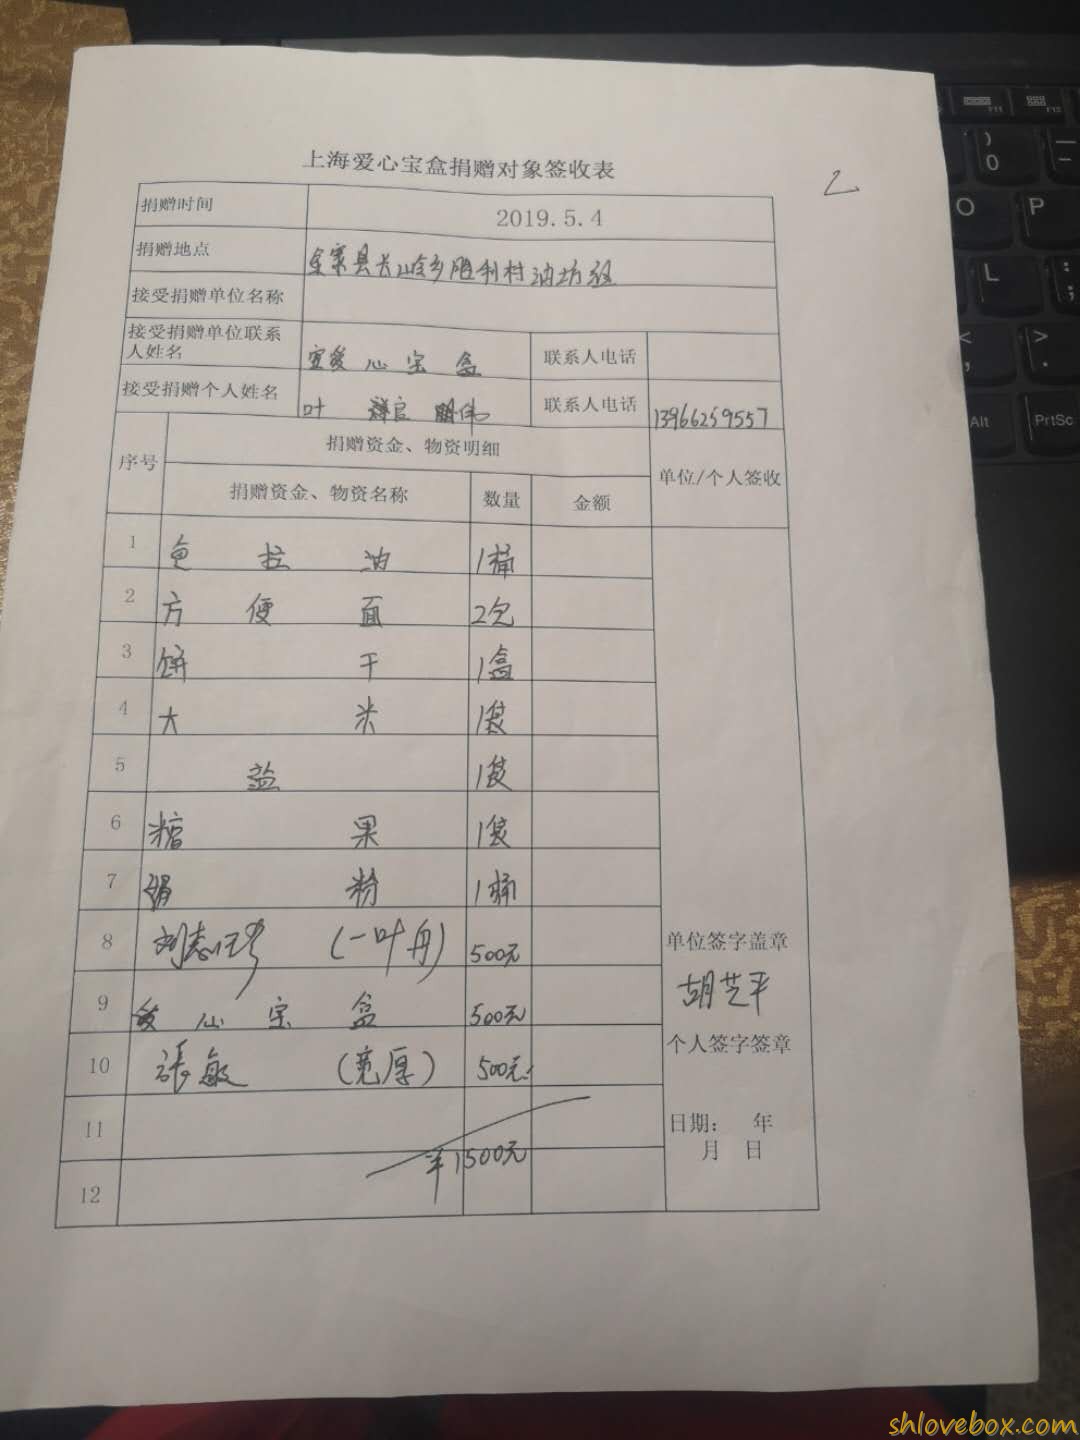 上海爱心宝盒捐赠对象签收表
2
捐赠时间 2019.5.4
捐赠地点 金寨县长岭乡胜利村油坊组
接受捐赠单位名称
接受捐赠单位联系人姓名 爱心宝盒 联系人电话
接受捐赠个人姓名 叶 联系人电话 13966259557
序号 捐赠资金、物资明细 单位/个人签收
捐赠资金、物资名称 数量 金额
1 色拉油 1桶
2 方便面 2包
3 饼干 1盒
4 大米 1袋
5 盐 1袋
6 糖果 1袋
7 粉 1桶
8 刘志 (一叶舟) 500元
单位签字盖章
胡芝平
9 爱心宝盒 500元
个人签字签章
10 張敏 (宽厚) 500元
11
日期: 年
月 日
¥1500元
12
F11 F12
) 0
—
O P
L : ;
< , > .
Alt PrtSc
shlovebox.com